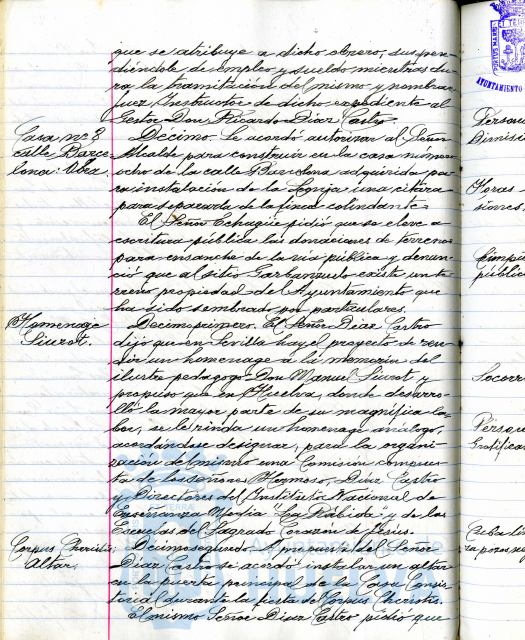 que se atribuye a dicho obrero, suspen-
diéndole de empleo y sueldo mientras du-
ra la tramitación del mismo y nombrar
Juez Instructor de dicho expediente al
Gestor Don Ricardo Diaz Castro.
Casa nº 8
calle Barce-
lona: Obra.
Décimo. Se acordó autorizar al Señor
Alcalde para construir en la casa número
ocho de la calle Barcelona adquirida pa-
ra instalación de la Lonja una citara
para separarla de la finca colindante.
El Señor Echagüe pidió que se eleve a
escritura pública las donaciones de terrenos
para ensanche de la via pública y denun-
ció que al sitio Garbanzuelo existe un te-
rreno propiedad del Ayuntamiento que
ha sido sembrado por particulares.
Homenaje
Siurot.
Decimoprimero. El Señor Diaz Castro
dijo que en Sevilla hay el proyecto de ren-
dir un homenage a la memoria del
ilustre pedagogo Don Manuel Siurot y
propuso que en Huelva, donde desarro-
lló la mayor parte de su magnifica la-
bor, se le rinda un homenage análogo,
acordándose designar, para la organi-
zación del mismo una Comisión compues-
ta de los señores Hermoso, Diaz Castro
y Directores del Instituto Nacional de
Enseñanza Media "La Rábida" y de las
Escuelas del Sagrado Corazón de Jesús.
Corpus Christi:
Altar.
Decimosegundo. A propuesta del Señor
Diaz Castro se acordó instalar un altar
en la puerta principal de la Casa Consis-
torial durante la fiesta de Corpus Christis.
El mismo Señor Diaz Castro pidió que
AYUNTAMIENTO
Person
Dimisi
Horas
siones.
limpie
públic
Socorro
Person
Gratifica